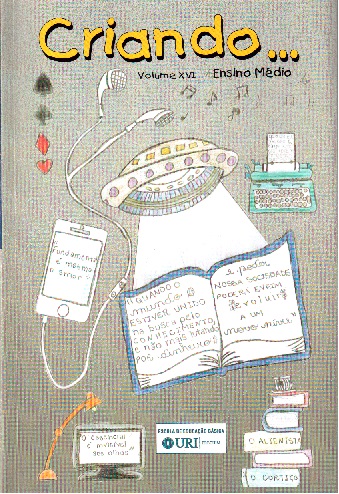 Criando...
Volume XVI Ensino Médio
O
fundamental
é mesmo
o amor
"QUANDO O
mundo
ESTIVER UNIDO
na busca pelo
CONHECIMENTO,
e não mais lutando
POR dinheiro
e poder,
NOSSA SOCIEDADE
PODERÁ ENFIM
Evoluir
A UM
O ESSENCIAL
é invisível
aos olhos"
ESCOLA DE EDUCAÇÃO BÁSICA
URI
O ALIENISTA
O CORTIÇO